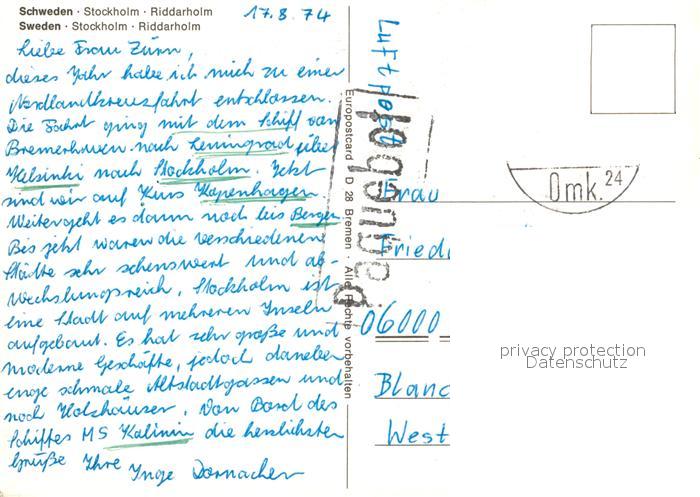 Schweden · Stockholm · Riddarholm
Sweden · Stockholm · Riddarholm
17.8.74
Liebe Frau Zürn,
dieses Jahr habe ich mich zu einer
Nordlandkreuzfahrt entschlossen.
Die Fahrt ging mit dem Schiff von
Bremerhaven nach Leningrad über
Helsinki nach Stockholm. Jetzt
sind wir auf Kurs Kopenhagen.
Weitergeht es dann noch bis Bergen
Bis jetzt waren die verschiedenen
Städte sehr sehenswert und ab-
wechslungsreich. Stockholm ist
eine Stadt auf mehreren Inseln
aufgebaut. Es hat sehr große und
moderne Geschäfte, jedoch daneben
enge schmale Altstadtgassen und
noch Holzhäuser. Von Bord des
Schiffes MS Kalinin die herzlichsten
Grüße Ihre Inge Dornacher
Europostcard · D 28 Bremen · Alle Rechte vorbehalten
Luftpost
Paquebot
0mk. 24
Frau
Fried
06000
Blanc
West
privacy protection
Datenschutz